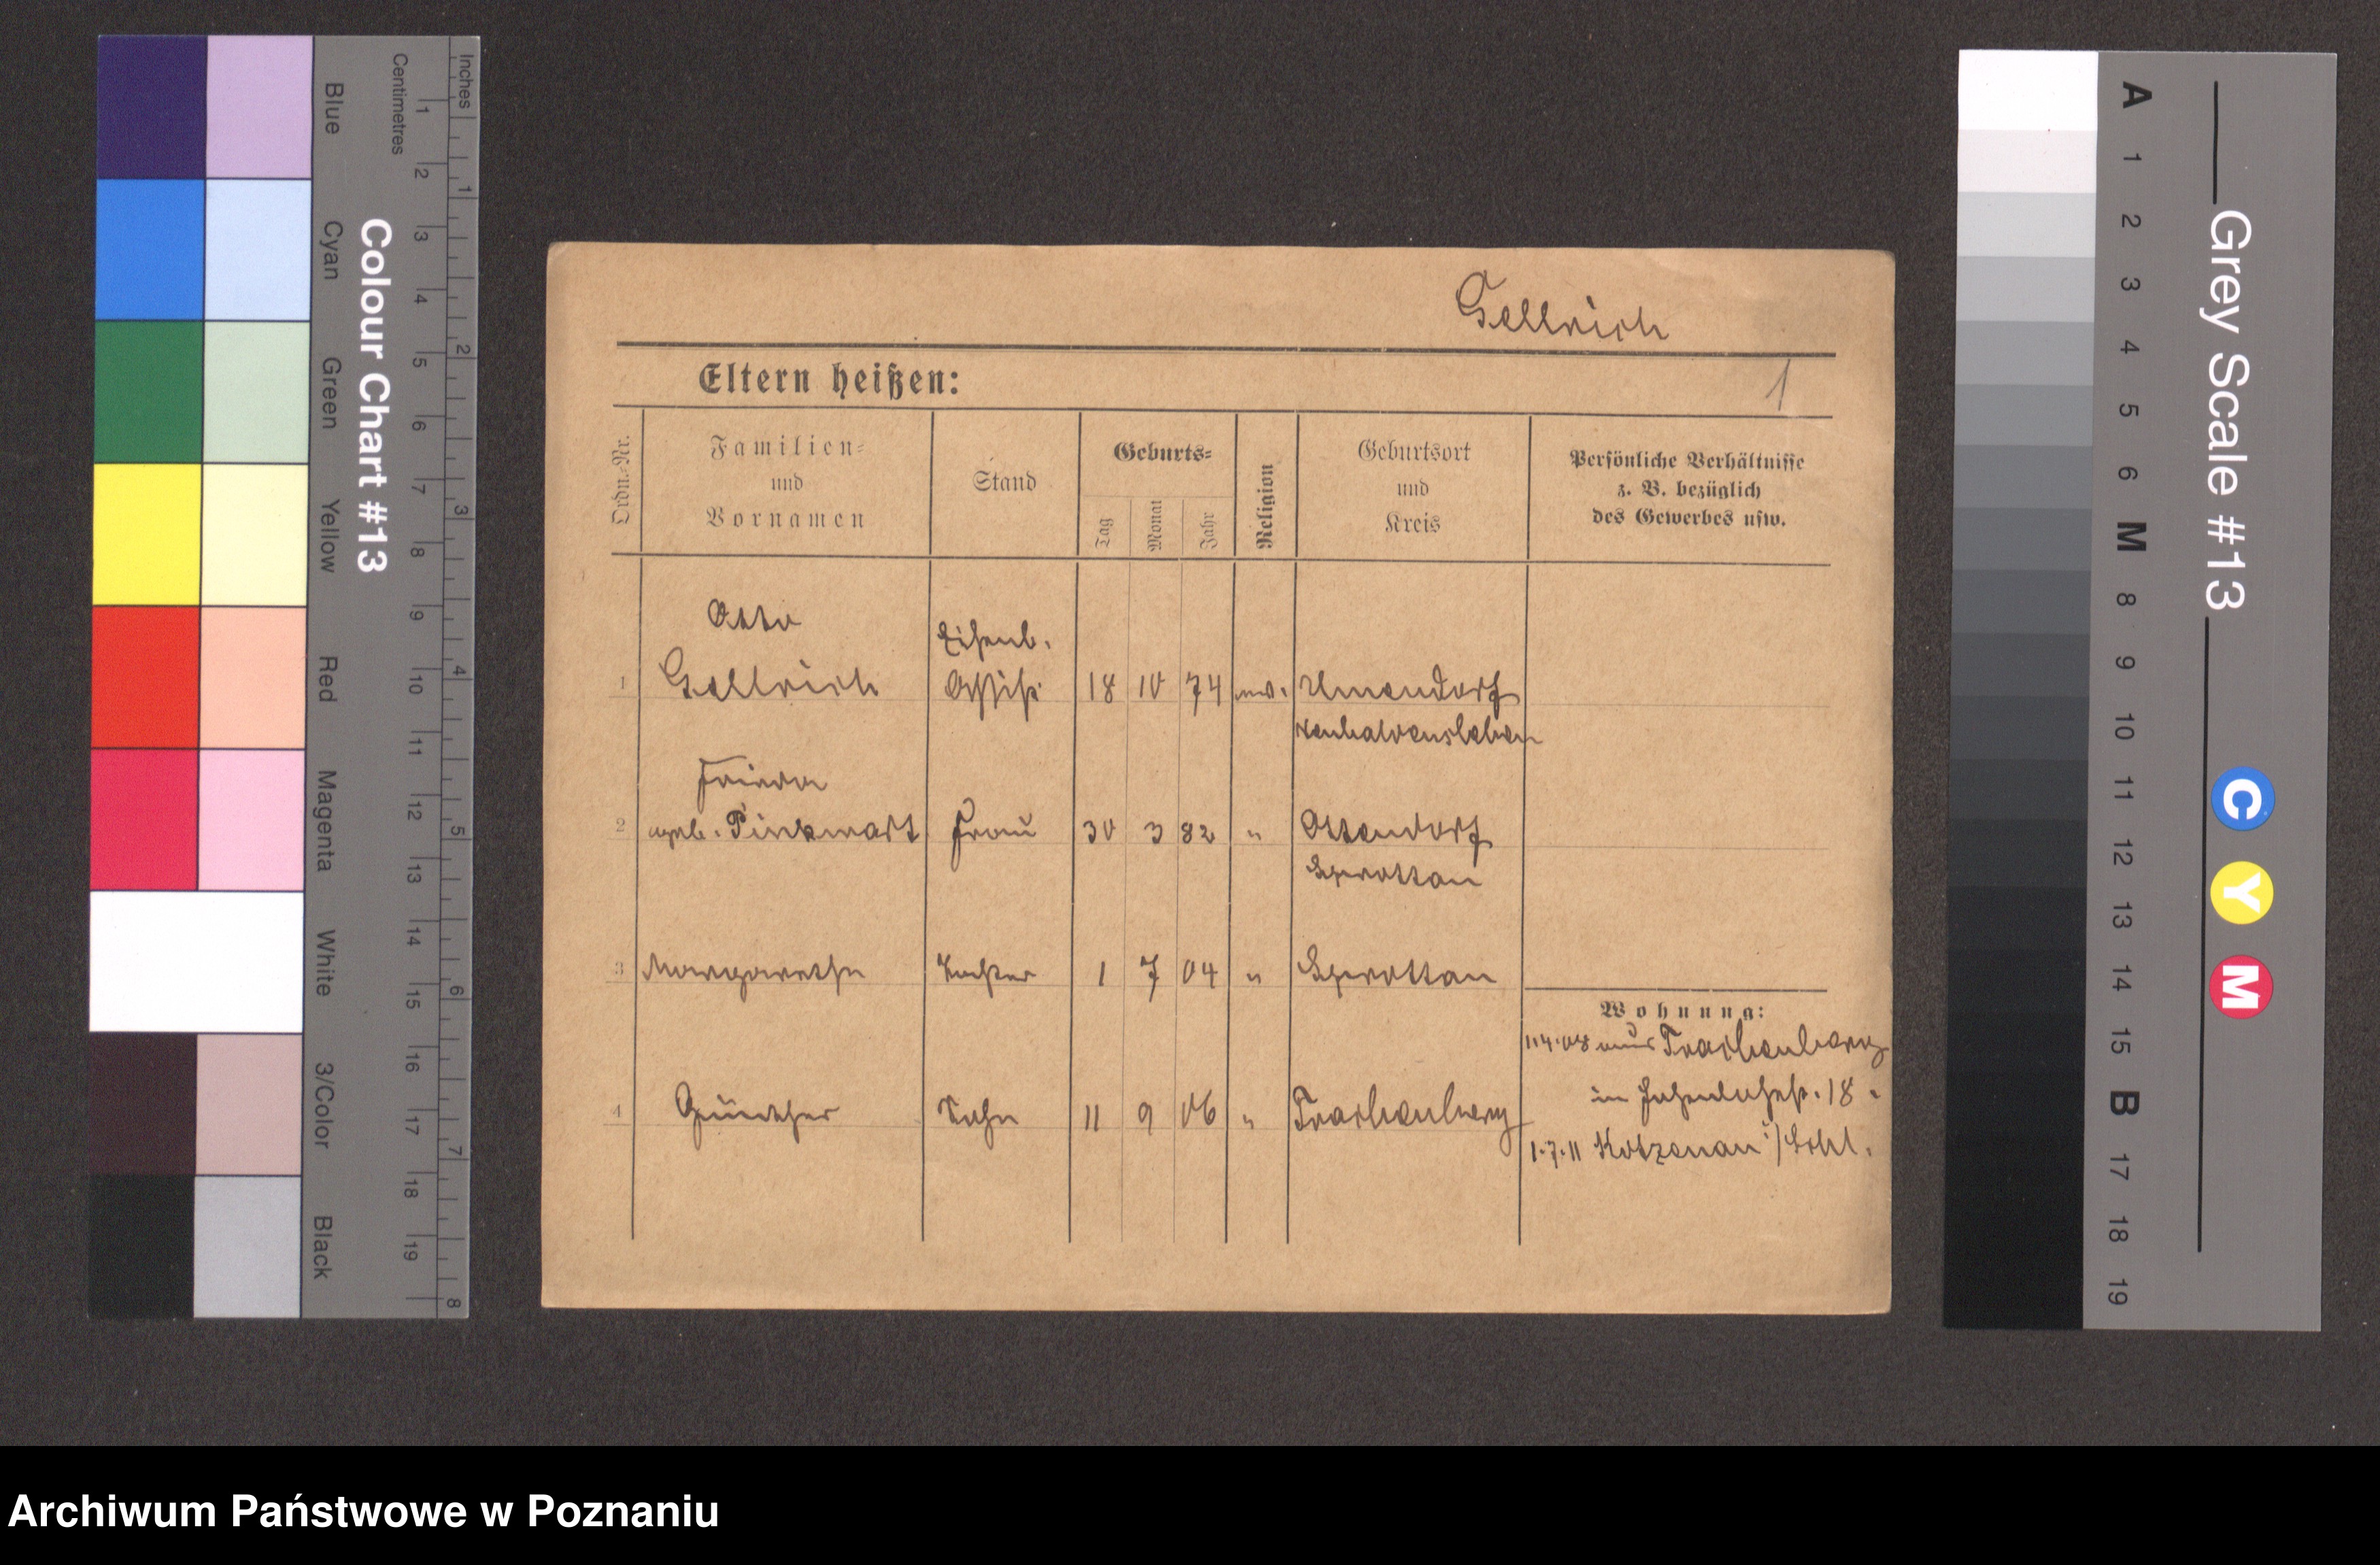 Gellrich
1
Eltern heißen:
Ordn.-Nr.
Familien-
und
Vornamen
Stand
Geburts-
Tag
Monat
Jahr
Religion
Geburtsort
und
Kreis
Persönliche Verhältnisse
z. B. bezüglich
des Gewerbes usw.
Otto
Eisenb.
1 Gellrich Assist. 18 10 74 ev. Umendorf
Neuhaldensleben
Frieda
2 geb. Pinkwart Frau 30 3 82 " Ottendorf
Sprottau
3 Margarethe Tochter 1 7 04 " Sprottau
Wohnung:
1.4.08 aus Trachenberg
in 18.
4 Günther Sohn 11 9 06 " Trachenberg
1.7.11 Kotzenau i/Schl.
Colour Chart #13
Blue
Cyan
Green
Yellow
Red
Magenta
White
3/Color
Black
Centimetres
1 2 3 4 5 6 7 8 9 10 11 12 13 14 15 16 17 18 19
Inches
1 2 3 4 5 6 7 8
Grey Scale #13
A 1 2 3 4 5 6 M 8 9 10 11 12 13 14 15 B 17 18 19
C Y M
Archiwum Państwowe w Poznaniu